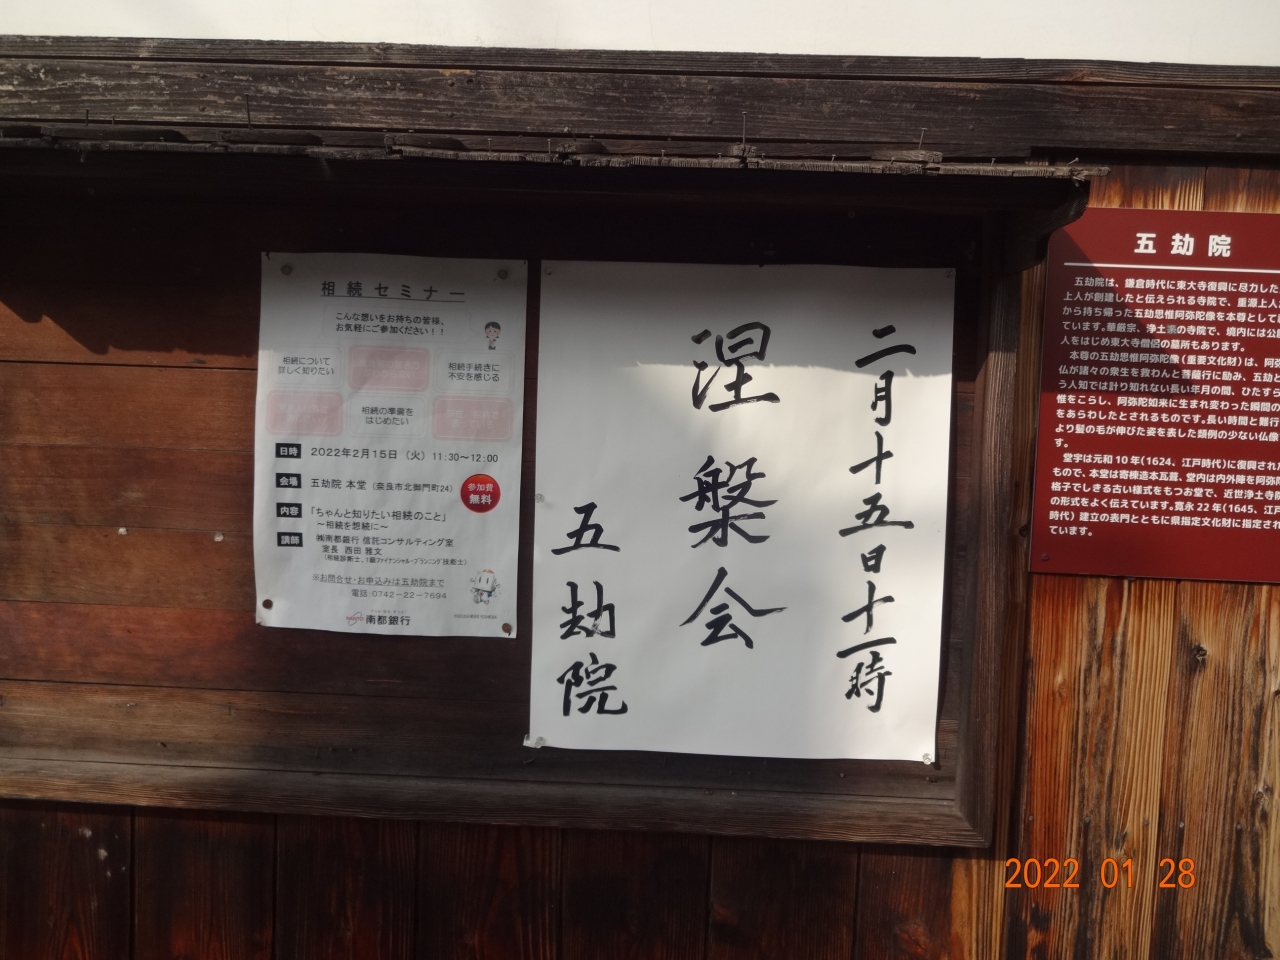 相続セミナー
こんな想いをお持ちの皆様、
お気軽にご参加ください！！
相続について
詳しく知りたい
相続手続きに
不安を感じる
相続の準備を
はじめたい
日時 2022年2月15日（火）11:30～12:00
会場 五劫院 本堂（奈良市北御門町24）
参加費
無料
内容 「ちゃんと知りたい相続のこと」
～相続を想続に～
講師 ㈱南都銀行 信託コンサルティング室
室長 西田 雅文
（相続診断士、1級ファイナンシャル・プランニング技能士）
※お問合せ・お申込みは五劫院まで
電話:0742－22－7694
南都銀行
二月十五日十一時
涅槃会
五劫院
五劫院
五劫院は、鎌倉時代に東大寺復興に尽力した
上人が創建したと伝えられる寺院で、重源上人が
から持ち帰った五劫思惟阿弥陀像を本尊として
ています。華厳宗、浄土系の寺院で、境内には公
人をはじめ東大寺僧侶の墓所もあります。
本尊の五劫思惟阿弥陀像（重要文化財）は、阿弥
仏が諸々の衆生を救わんと菩薩行に励み、五劫と
う人知では計り知れない長い年月の間、ひたすら
惟をこらし、阿弥陀如来に生まれ変わった瞬間の
をあらわしたとされるものです。長い時間と難行
より髪の毛が伸びた姿を表した類例の少ない仏像
す。
堂宇は元和10年（1624、江戸時代）に復興された
もので、本堂は寄棟造本瓦葺、堂内は内外陣を阿弥陀
格子でしきる古い様式をもつお堂で、近世浄土寺院
の形式をよく伝えています。寛永22年（1645、江戸
時代）建立の表門とともに県指定文化財に指定され
ています。
2022 01 28